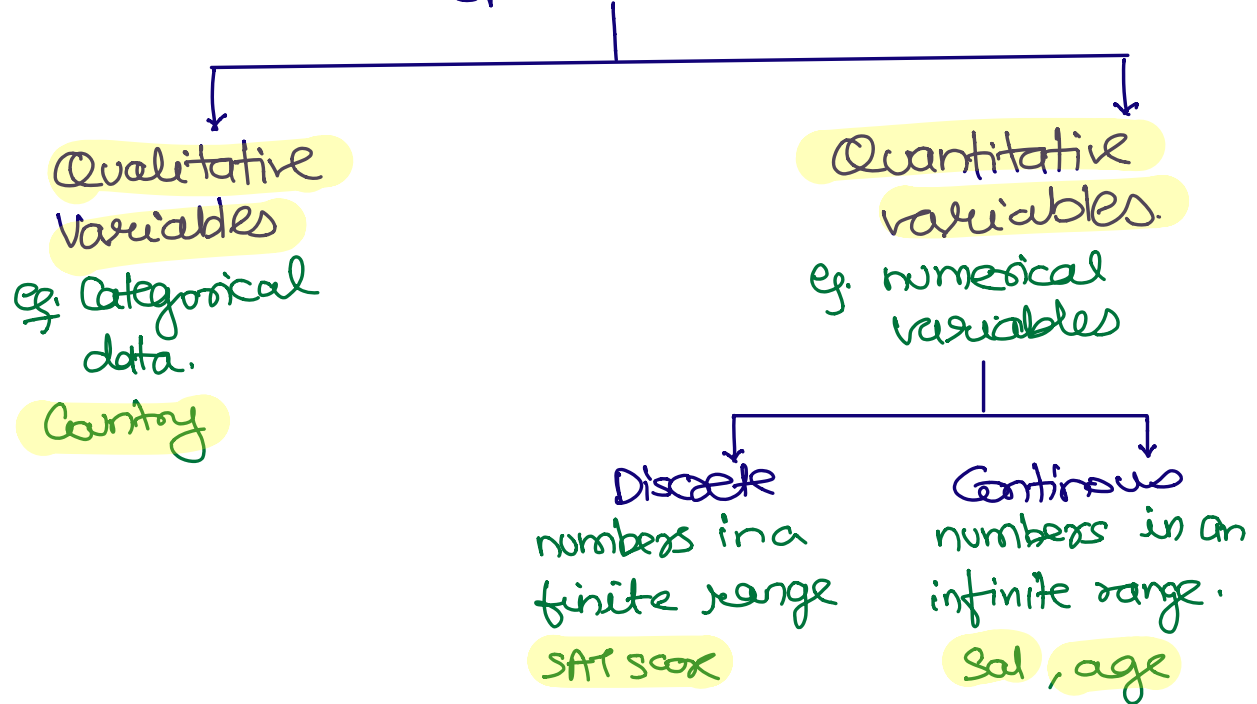 Qualitative
Variables
eg. Categorical
data.
Country
Quantitative
variables.
eg. numerical
variables
Discrete
numbers in a
finite range
SAT score
Continous
numbers in an
infinite range.
Sal, age